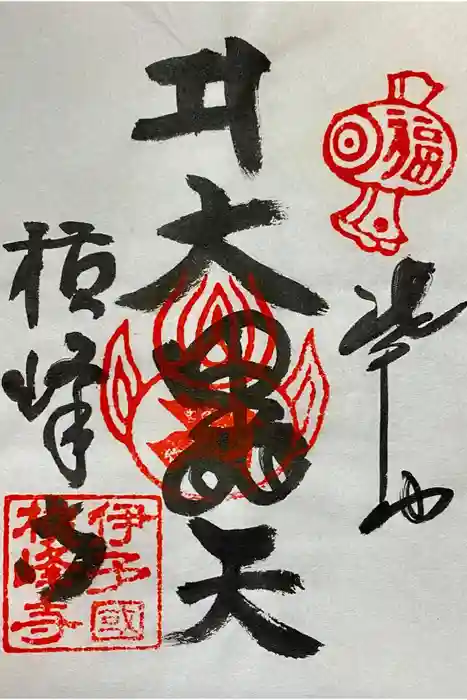 福
大黒天
横峰寺
伊予國
横峰寺